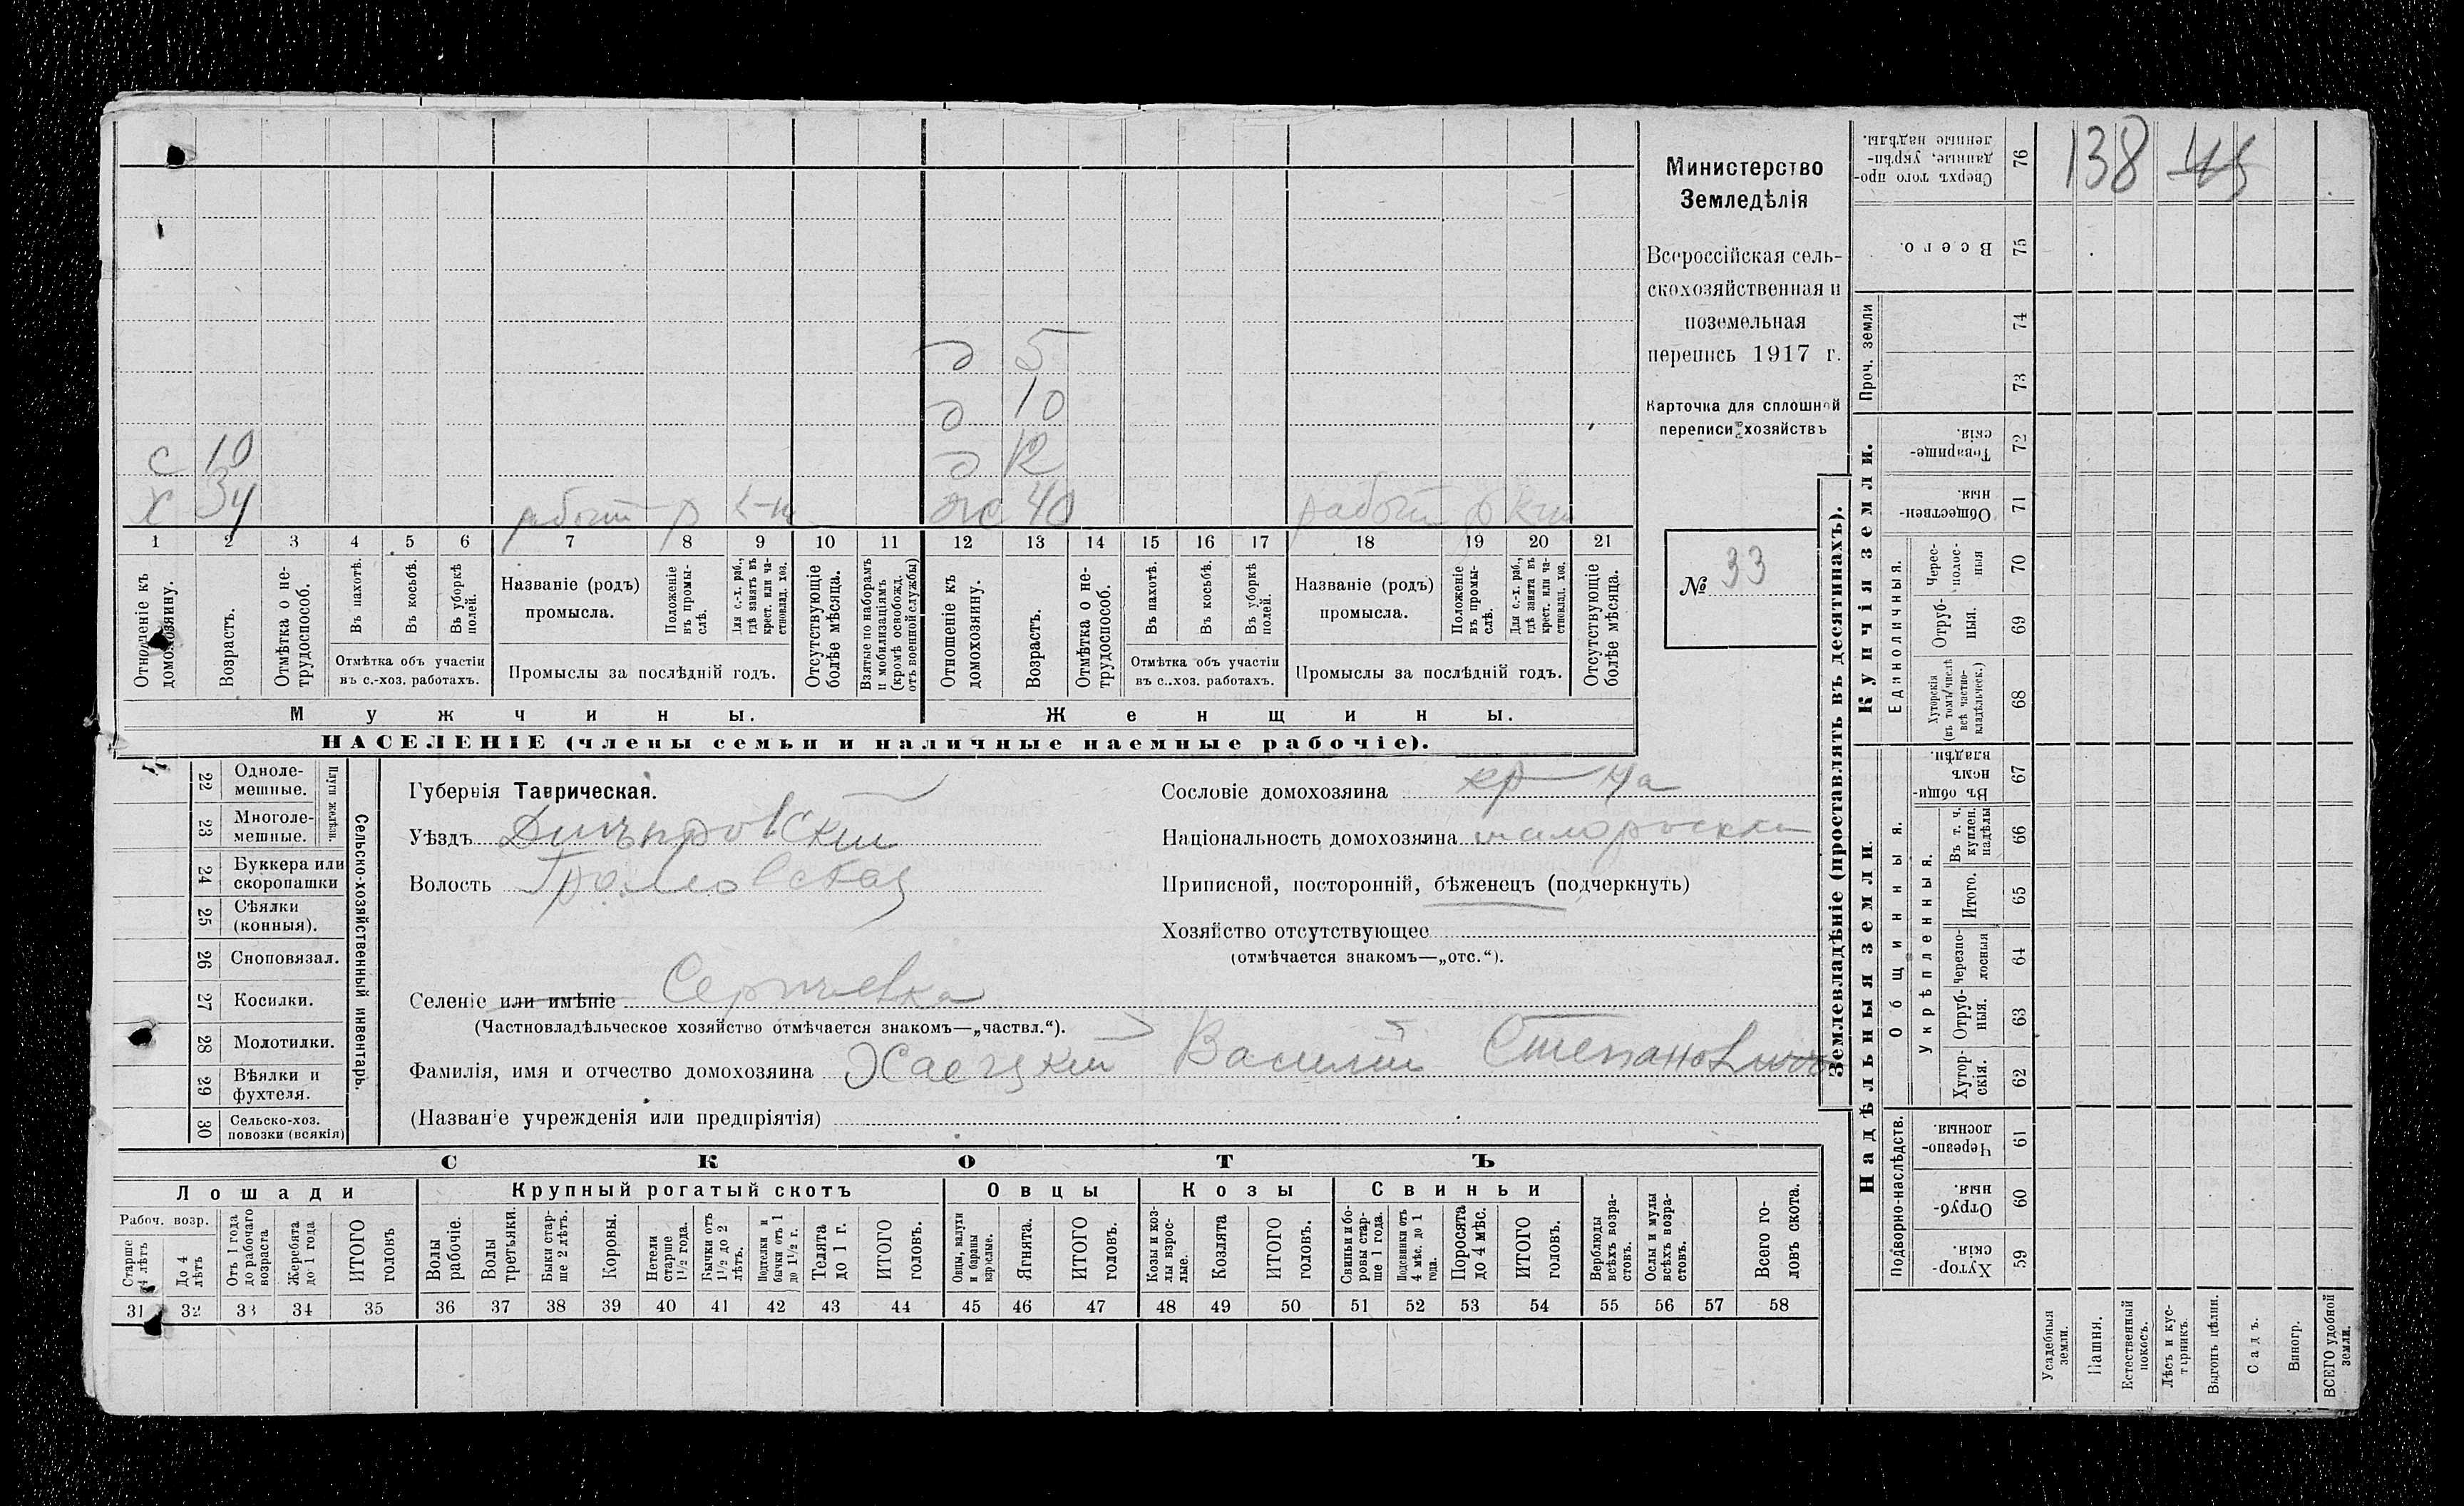 Министерство
Земледѣлія
Всероссійская сель-
скохозяйственная и
поземельная
перепись 1917 г.
Карточка для сплошной
переписи хозяйствъ
№ 33
д 5
д 10
с 10 д 12
х 34 р жс 40 р
1 2 3 4 5 6 7 8 9 10 11 12 13 14 15 16 17 18 19 20 21
Отношеніе къ домохозяину.
Возрастъ.
Отмѣтка о не-трудоспособ.
Въ пахотѣ.
Въ косьбѣ.
Въ уборкѣ полей.
Отмѣтка объ участіи
въ с.-хоз. работахъ.
Названіе (родъ)
промысла.
Положеніе въ промы-слѣ.
Для с.-х. раб., гдѣ занятъ въ крест. или ча-стновлад. хоз.
Промыслы за послѣдній годъ.
Отсутствующіе болѣе мѣсяца.
Взятые по наборамъ и мобилизаціямъ (кромѣ освобожд. отъ военной службы)
Отношеніе къ домохозяину.
Возрастъ.
Отмѣтка о не-трудоспособ.
Въ пахотѣ.
Въ косьбѣ.
Въ уборкѣ полей.
Отмѣтка объ участіи
въ с.-хоз. работахъ.
Названіе (родъ)
промысла.
Положеніе въ промы-слѣ.
Для с.-х. раб., гдѣ занята въ крест. или ча-стновлад. хоз.
Промыслы за послѣдній годъ.
Отсутствующіе болѣе мѣсяца.
Мужчины. Женщины.
НАСЕЛЕНІЕ (члены семьи и наличные наемные рабочіе).
22 Одноле-мешные.
23 Многоле-мешные.
Плуги желѣзн.
24 Буккера или скоропашки
25 Сѣялки (конныя).
26 Сноповязал.
27 Косилки.
28 Молотилки.
29 Вѣялки и фухтеля.
30 Сельско-хоз. повозки (всякія)
Сельско-хозяйственный инвентарь.
Губернія Таврическая.
Уѣздъ Днѣпровскій
Волость Громовская
Селеніе или имѣніе
(Частновладѣльческое хозяйство отмѣчается знакомъ—„частвл.“).
Фамилія, имя и отчество домохозяина Хаецкій Василій Степановичъ
(Названіе учрежденія или предпріятія)
Сословіе домохозяина кр-на
Національность домохозяина малоросск
Приписной, посторонній, бѣженецъ (подчеркнуть)
Хозяйство отсутствующее
(отмѣчается знакомъ—„отс.“).
СКОТЪ
Лошади Крупный рогатый скотъ Овцы Козы Свиньи
Рабоч. возр.
Старше 4 лѣтъ
До 4 лѣтъ
Отъ 1 года до рабочаго возраста
Жеребята до 1 года
ИТОГО головъ
Волы рабочіе.
Волы третьяки.
Быки стар-ше 2 лѣтъ.
Коровы.
Нетели старше 1½ года.
Бычки отъ 1½ до 2 лѣтъ.
Подтелки и бычки отъ 1 до 1½ г.
Телята до 1 г.
ИТОГО головъ.
Овцы, валухи и бараны взрослые.
Ягнята.
ИТОГО головъ.
Козы и коз-лы взрос-лые.
Козлята
ИТОГО головъ.
Свиньи и бо-ровы стар-ше 1 года.
Подсвинки отъ 4 мѣс. до 1 года.
Поросята до 4 мѣс.
ИТОГО головъ.
Верблюды всѣхъ возра-стовъ.
Ослы и мулы всѣхъ возра-стовъ.
Всего го-ловъ скота.
31 32 33 34 35 36 37 38 39 40 41 42 43 44 45 46 47 48 49 50 51 52 53 54 55 56 57 58
Землевладѣніе (проставлять въ десятинахъ).
Надѣльныя земли.
Купчія земли.
Проч. земли
Подворно-наслѣдств.
Общинныя.
Укрѣпленныя.
Единоличныя.
Хутор-скія. 59
Отруб-ныя. 60
Черезпо-лосныя. 61
Хутор-скія. 62
Отруб-ныя. 63
Черезпо-лосныя 64
Итого. 65
Въ т. ч. куплен. надѣлы 66
Въ общи-номъ владѣн. 67
Хуторскія (въ томъ числѣ всѣ частно-владѣльческ.) 68
Отруб-ныя. 69
Черес-полос-ныя 70
Обществен-ныя. 71
Товарище-скія. 72
73
74
Всего. 75
Сверхъ того про-данные, укрѣп-ленные надѣлы. 76
138 45
Усадебныя земли.
Пашня.
Естественный покосъ.
Лѣсъ и кус-тарникъ.
Выгонъ цѣлин.
Садъ.
Виногр.
ВСЕГО удобной земли.